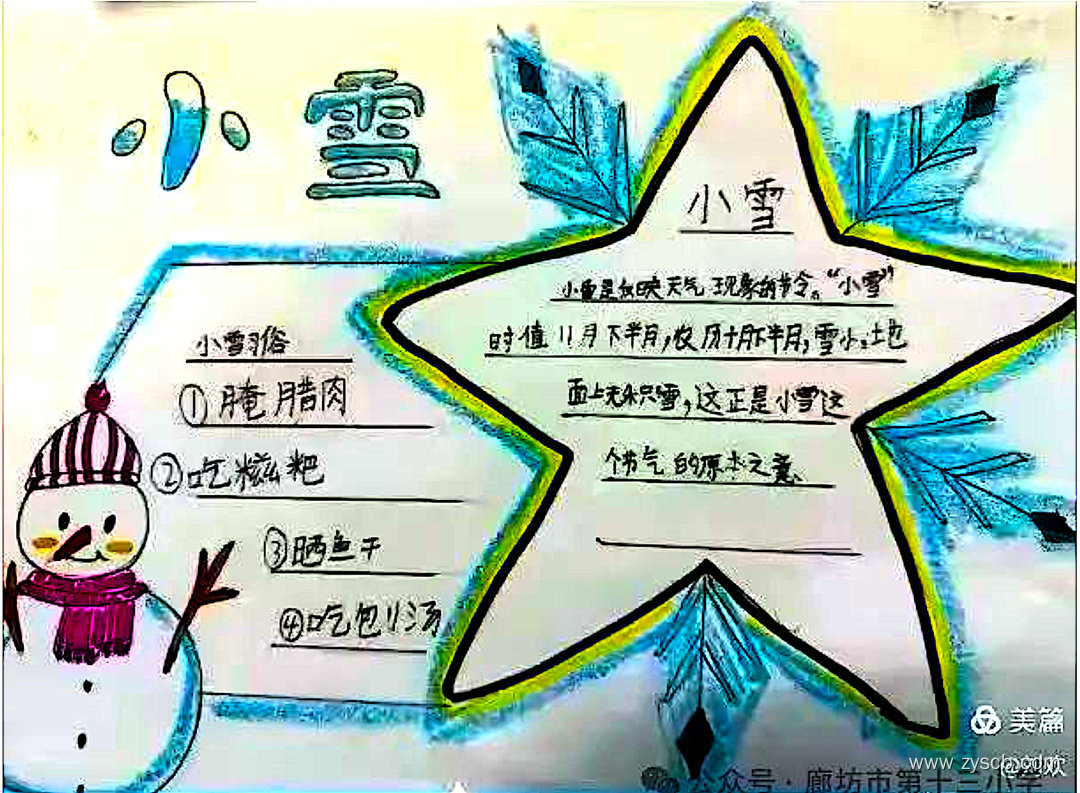 小雪
小雪
小雪是反映天气现象的节令。“小雪”
时值11月下半月,农历十月下半月,雪小,地
面上无积雪,这正是小雪这
个节气的原本之意
小雪习俗
①腌腊肉
②吃糍粑
③晒鱼干
④吃刨汤
美篇
www.zyscb.com
公众号·廊坊市第十三小学